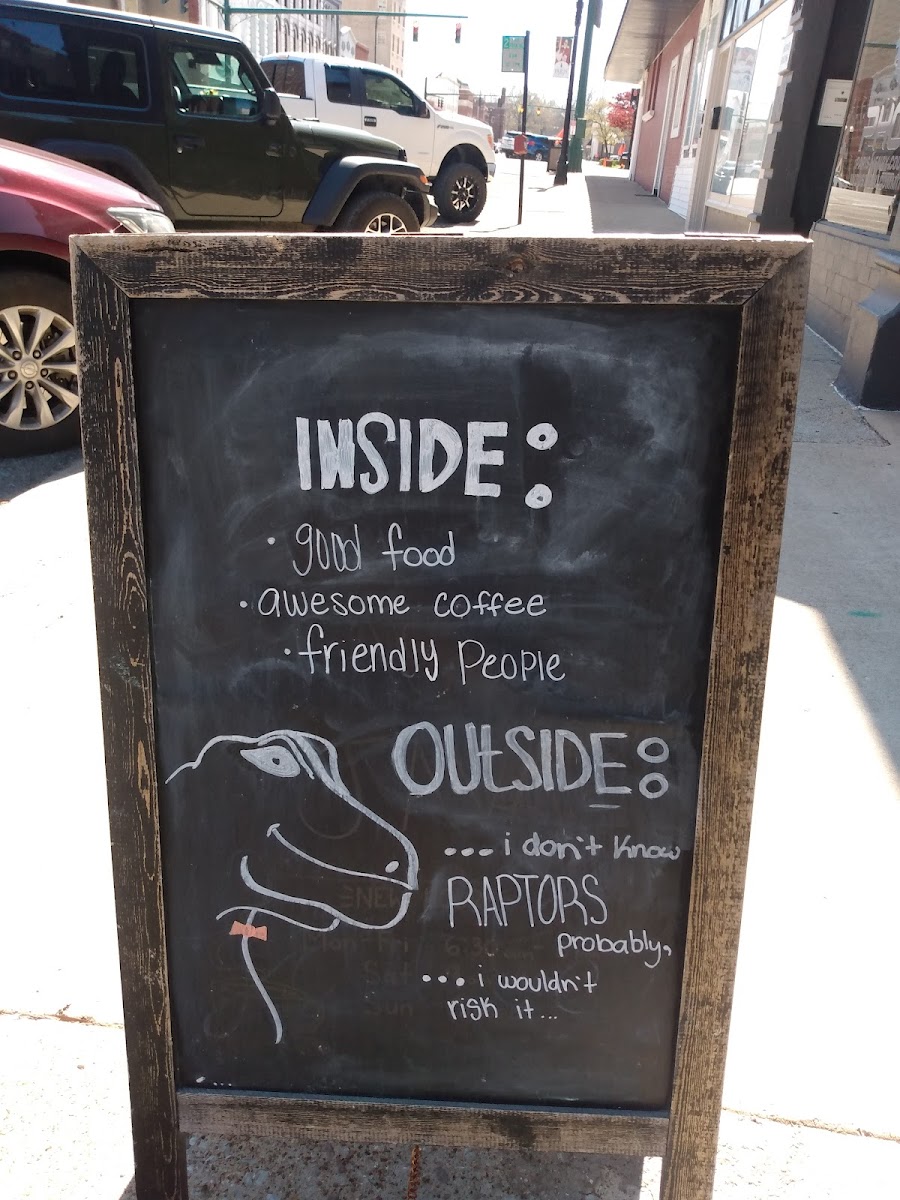 INSIDE:
• good food
• awesome coffee
• friendly people
OUtSIDE:
...i don't know
RAPTORS
probably,
...i wouldn't
risk it...
NEW
Mon-Fri 6:30am-
Sat
Sun